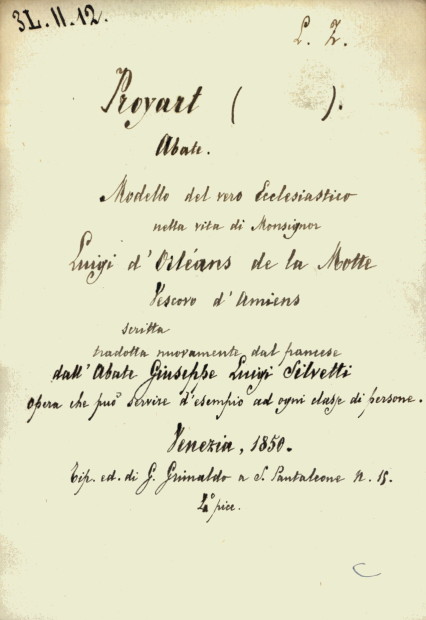 3L.II.12.
L. Z.
Proyart ( ).
Abate.
Modello del vero Ecclesiastico
nella vita di Monsignor
Luigi d'Orléans de la Motte
Vescovo d'Amiens
scritta
tradotta nuovamente dal francese
dall'Abate Giuseppe Luigi Silvetti
opera che può servire d'esempio ad ogni classe di persone.
Venezia, 1850.
Tip. ed. di G. Grimaldo a S. Pantaleone n. 15.
4° picc.
C